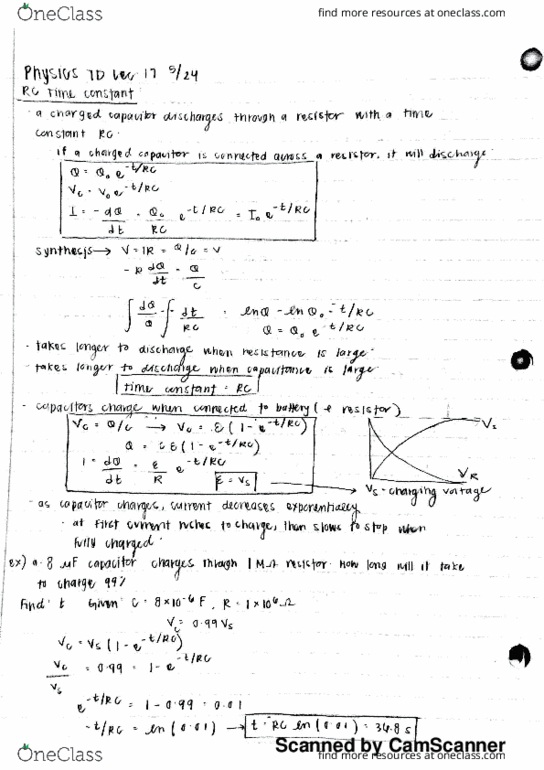 OneClass
find more resources at oneclass.com
Physics 7D Lec 17 5/24
RC Time constant
- a charged capacitor discharges through a resistor with a time
constant RC.
if a charged capacitor is connected across a resistor, it will discharge.
Q = Q₀ e^-t/RC
Vc = V₀ e^-t/RC
I = -dQ/dt = Q₀/RC e^-t/RC = I₀ e^-t/RC
synthesis → V = IR = Q/C = V
-R dQ/dt = Q/C
∫ dQ/Q = ∫ - dt/RC
ln Q - ln Q₀ = -t/RC
Q = Q₀ e^-t/RC
- takes longer to discharge when resistance is large
- takes longer to discharge when capacitance is large
time constant = RC
- capacitors charge when connected to battery (& resistor)
Vc = Q/C → Vc = ε(1 - e^-t/RC)
Q = Cε(1 - e^-t/RC)
I = dQ/dt = ε/R e^-t/RC
ε = Vs
Vs
VR
Vs - charging voltage
- as capacitor charges, current decreases exponentially
- at first current rushes to charge, then slows to stop when
fully charged.
ex) a 8 μF capacitor charges through 1 MΩ resistor. How long will it take
to charge 99%
Find: t Given: C = 8×10^-6 F, R = 1×10^6 Ω
Vc = 0.99 Vs
Vc = Vs (1 - e^-t/RC)
Vc/Vs = 0.99 = 1 - e^-t/RC
e^-t/RC = 1 - 0.99 = 0.01
-t/RC = ln(0.01) → t = -RC ln(0.01) = 36.8 s
Scanned by CamScanner
OneClass
find more resources at oneclass.com